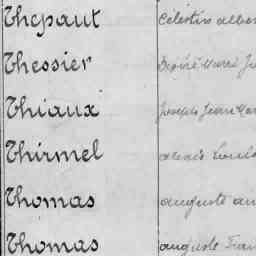 Thepaut Célestin albe
Thessier Désiré Marie
Thiaux Joseph Jean Ma
Thirmel alexis Louis
Thomas auguste au
Thomas auguste Fran